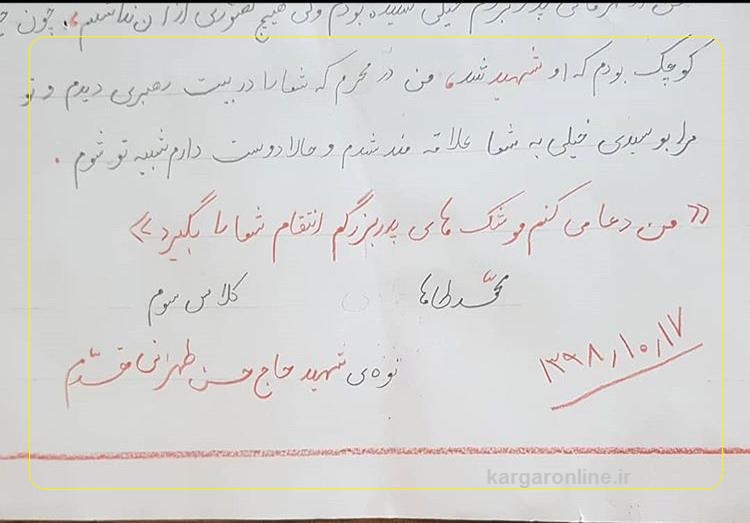 پدربزرگم خیلی شنیده بودم ولی هیچ تصوری از آن نداشتم، چون
کوچک بودم که او شهید شد، من در محرم که شما را در بیت رهبری دیدم و تو
مرا بوسیدی خیلی به شما علاقه مند شدم و حالا دوست دارم شبیه تو شوم.
«من دعا می کنم موشک های پدربزرگم انتقام شما را بگیرد»
محمّد طاها کلاس سوم
۱۳۹۸,۱۰,۱۷
نوه ی شهید حاج حسن طهرانی مقدّم
kargaronline.ir